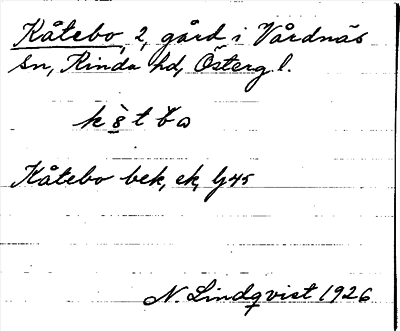 Kåtebo, 2, gård i Vårdnäs
sn, Kinda hd, Österg. l.
Kåtebo bek, ek, Lj 45
N. Lindqvist 1926